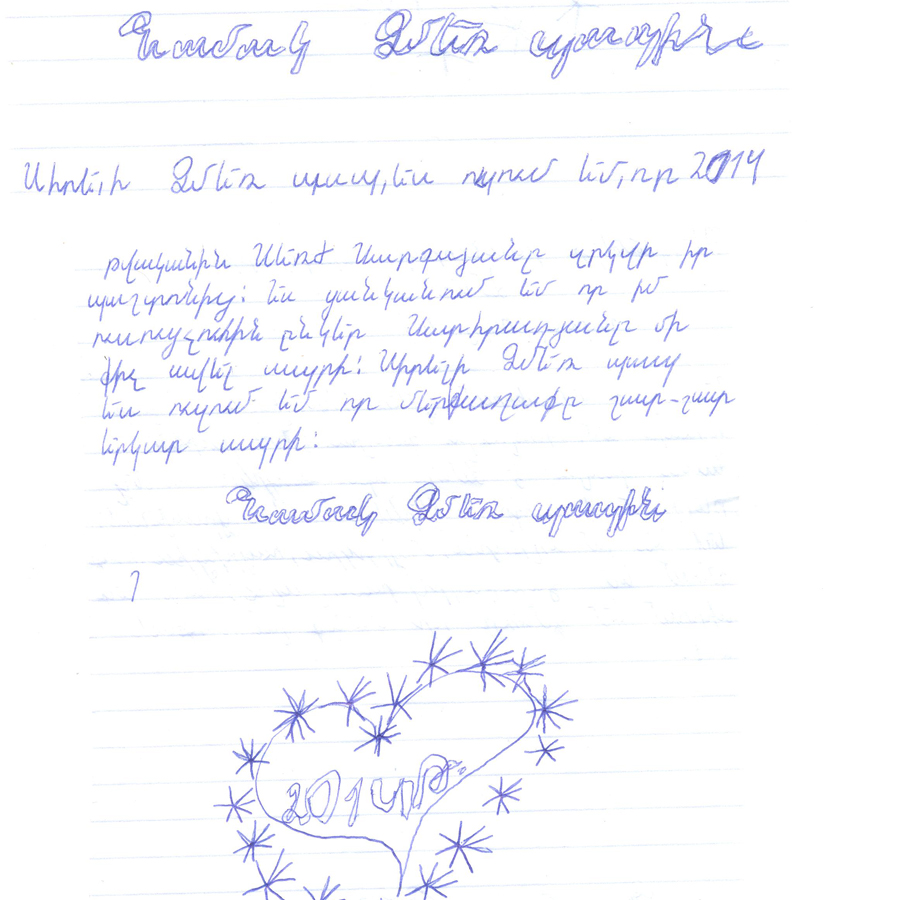 Նամակ Ձմեռ պապիկ
Սիրելի Ձմեռ պապ, ես ուզում եմ, որ 2014
թվականին Սերժ Սարգսյանը զրկվի իր
պաշտոնից: Ես ցանկանում եմ որ իմ
ուսուցչուհին ընկեր Մարտիրոսյանը մի
քիչ ավել ապրի: Սիրելի Ձմեռ պապ
ես ուզում եմ որ մեր քաղաքը շատ-շատ
երկար ապրի:
Նամակ Ձմեռ պապիկի
2014թ.